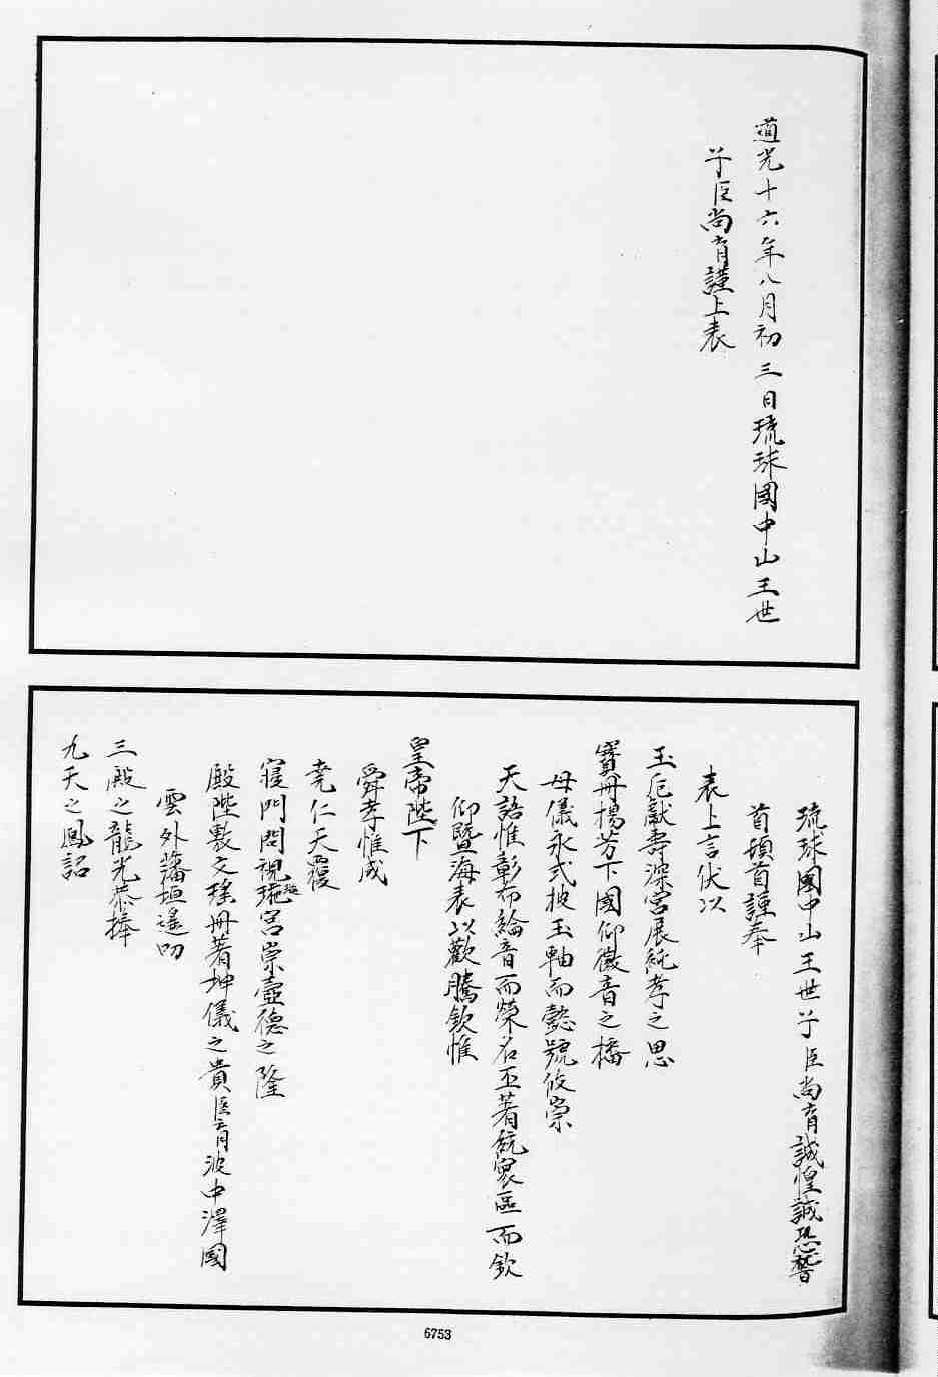 道光十六年八月初三日琉球國中山王世
子臣尚育謹上表
琉球國中山王世子臣尚育誠惶誠恐稽
首頓首謹奉
表上言伏以
玉卮獻壽深宮展純孝之思
寶冊揚芳下國仰徽音之播
母儀永式披玉軸而懿號攸崇
天語惟彰布綸音而榮名丕著統寰區而欽
仰暨海表以歡騰欽惟
皇帝陛下
舜孝惟成
堯仁天覆
寢門問視琁宮崇壼德之隆
殿陛敷文瑤冊著坤儀之貴臣育波中澤國
雲外藩垣遙叨
三殿之龍光恭捧
九天之鳳詔
6753